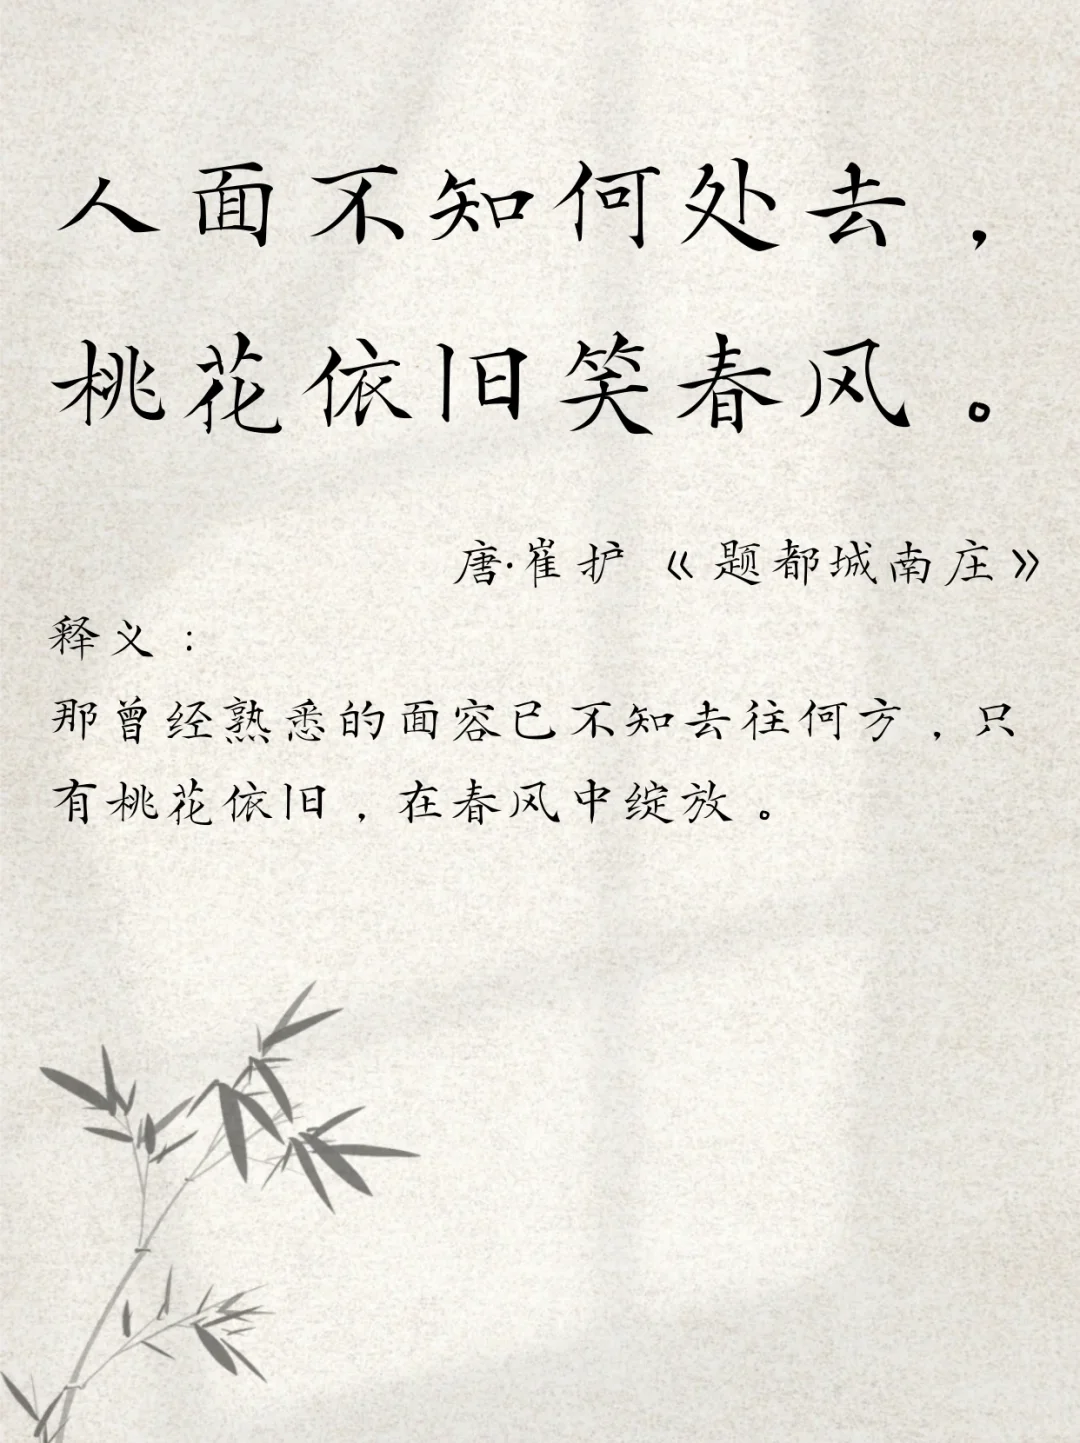 人面不知何处去，
桃花依旧笑春风。
唐·崔护《题都城南庄》
释义：
那曾经熟悉的面容已不知去往何方，只
有桃花依旧，在春风中绽放。